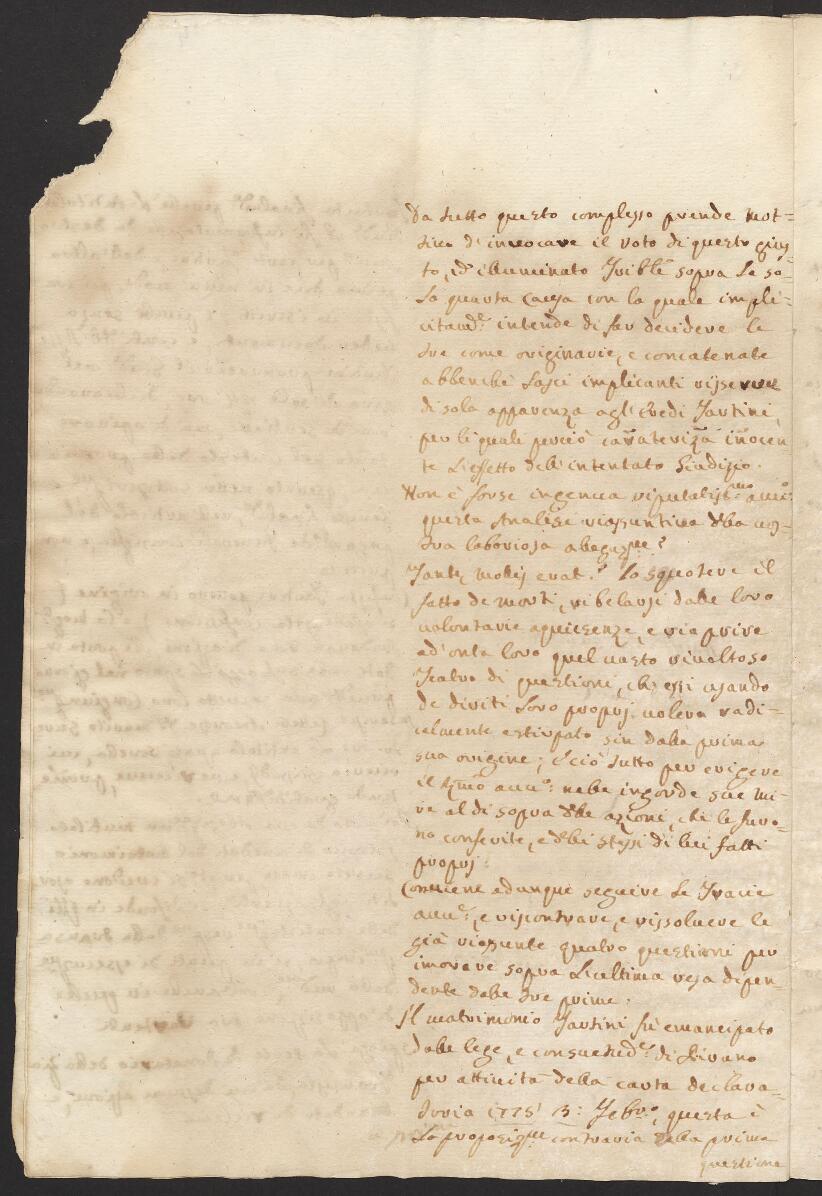 Da tutto questo complesso prende mot=
tivo d'invocare il voto di questo gius=
to, ed' illuminato Trible sopra la so=
la quarta causa con la quale impli=
citamte intende di far decidere le
tre come originarie, e concatenate
abbenchè lasci implicanti
di sola apparenza agl'Eredi Tartini,
per le quale perciò caratteriza inocen=
te l'effetto dell'intentato Giudizio.
Non è forse ingenua
questa Analise riassuntiva della nos=
tra laboriosa
Tantæ molis erat? Lo squotere il
fatto de morti, ribelarsi dalle loro
volontarie aquiesenze, e riaprire
ad'onta loro quel vasto rivoltoso
Teatro di questioni, che essi usando
de diriti loro proprj voleva radi=
calmente estirpato sin dalla prima
sua origine; E ciò tutto per erigere
il nelle ingorde sue mi=
re al di sopra delle azioni, che le furo=
no conferite, e delli stessi di lei fatti
proprj.
Conviene adunque seguire le Traccie
e riscontrare, e rissolvere le
già riassunte quatro questioni per
sopra l'ultima resa dipen=
dente dalle tre prime.
Il matrimonio Tartini fù emancipato
dalle lege, e consuetude di Pirano
per attività della carta declara=
toria 1775 13: Febro, questa è
la proposizne contraria della prima
questione